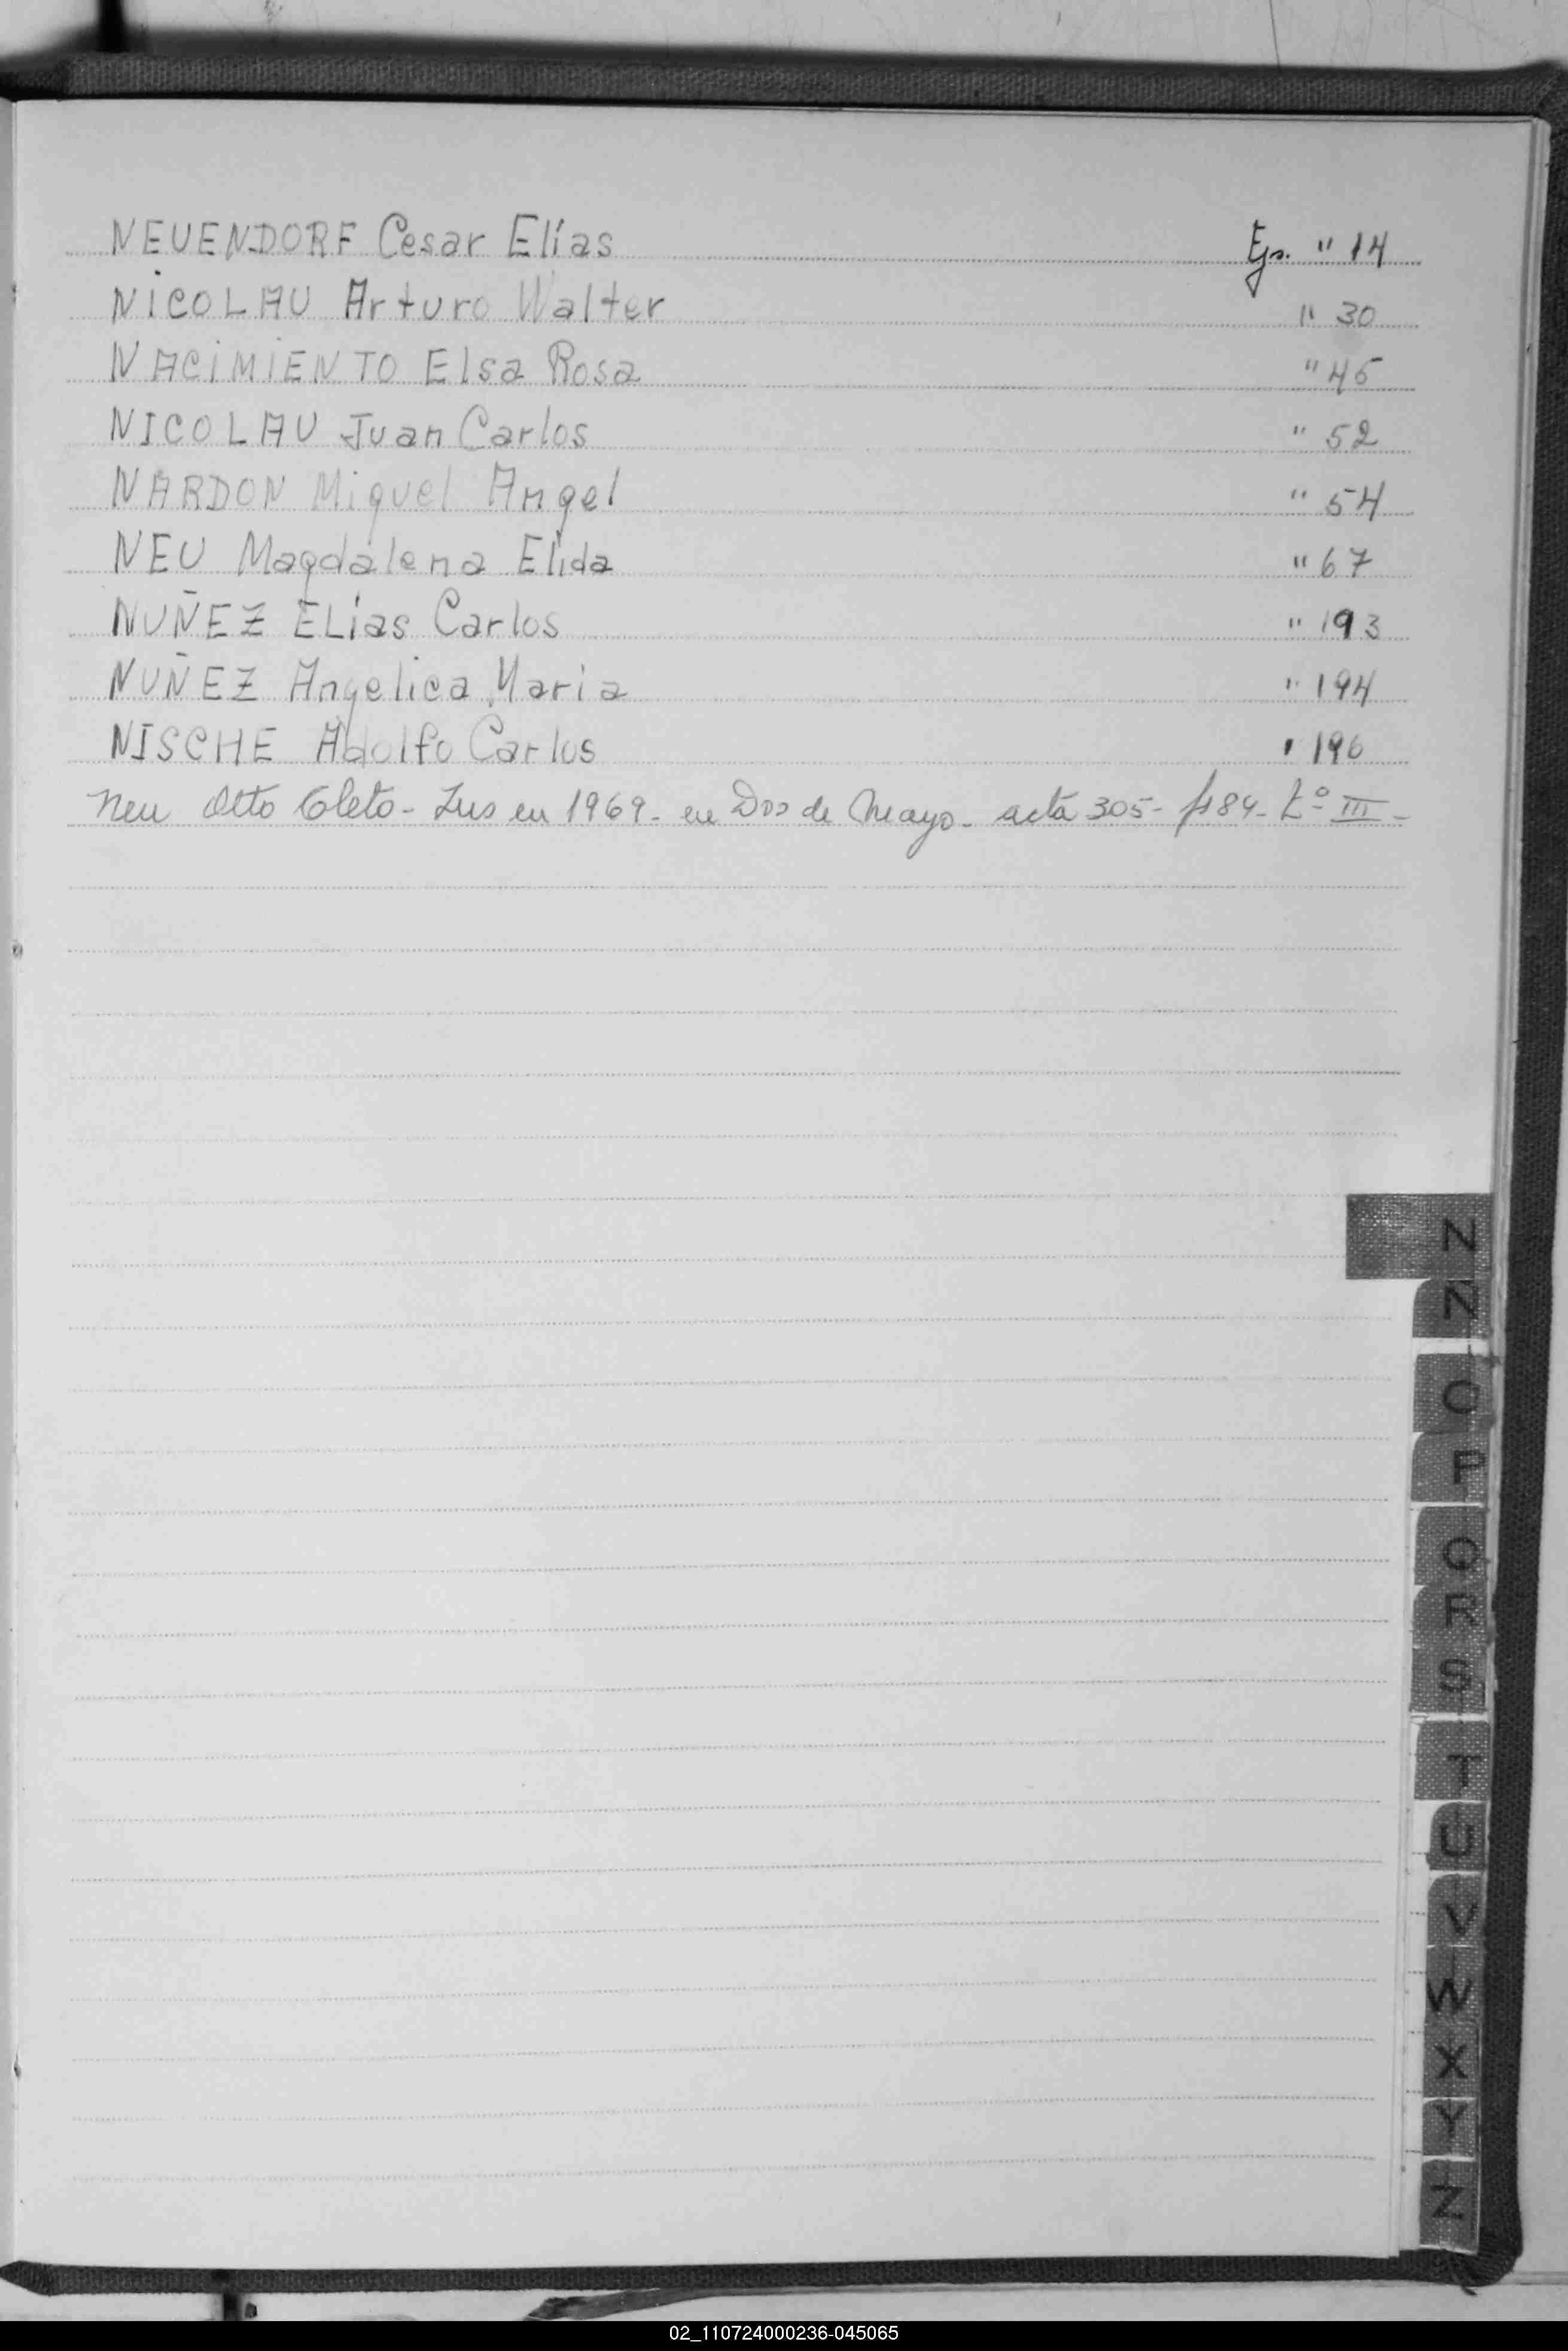 NEUENDORF Cesar Elías Fjs. " 14
NICOLAU Arturo Walter " 30
NACIMIENTO Elsa Rosa " 45
NICOLAU Juan Carlos " 52
NARDON Miguel Angel " 54
NEU Magdalena Elida " 67
NUÑEZ ELías Carlos " 193
NUÑEZ Angelica Maria " 194
NISCHE Adolfo Carlos " 196
Neu Otto Cleto - Ins en 1969 - en Dos de Mayo - acta 305 - f 184 - Tº III -
N
Ñ
O
P
Q
R
S
T
U
V
W
X
Y
Z
02_110724000236-045065